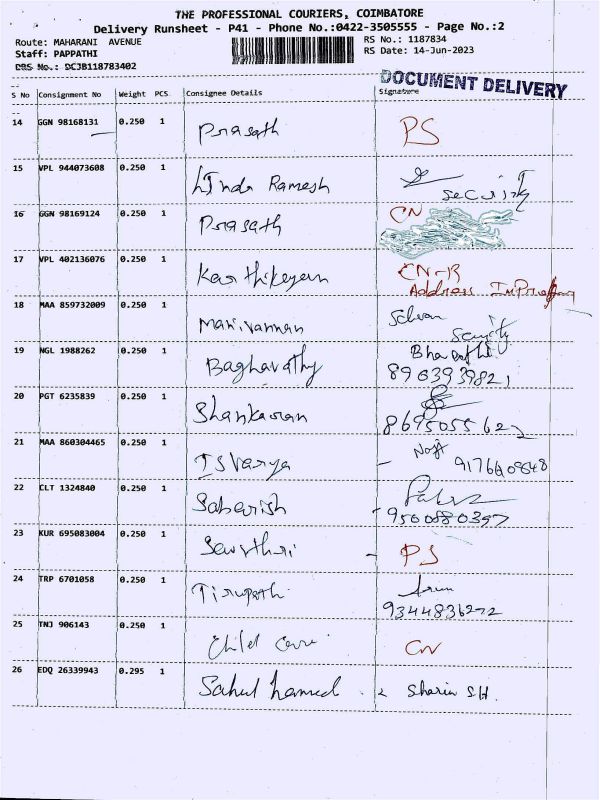 THE PROFESSIONAL COURIERS, COIMBATORE
Delivery Runsheet - P41 - Phone No.:0422-3505555 - Page No.:2
Route: MAHARANI AVENUE
RS No.: 1187834
Staff: PAPPATHI
RS Date: 14-Jun-2023
DRS No.: DCJB118783402
DOCUMENT DELIVERY
S No Consignment No Weight PCS Consignee Details Signature
14 GGN 98168131 0.250 1 Prasath PS
15 VPL 944073608 0.250 1 Ramesh Security
16 GGN 98169124 0.250 1 Prasath CN
17 VPL 402136076 0.250 1 Karthikeyan CN-R
Address
18 MAA 859732009 0.250 1 Manivannan
Security
19 NGL 1988262 0.250 1 Baghavathy Bharathi
20 PGT 6235839 0.250 1 Shankaran
21 MAA 860304465 0.250 1 Isvarya
22 CLT 1324840 0.250 1 Sabarish
9500880397
23 KUR 695083004 0.250 1 PS
24 TRP 6701058 0.250 1 Tirupath Arun
9344836272
25 TNJ 906143 0.250 1 Child Care CN
26 EDQ 26339943 0.295 1 Sahul hamed S.H.